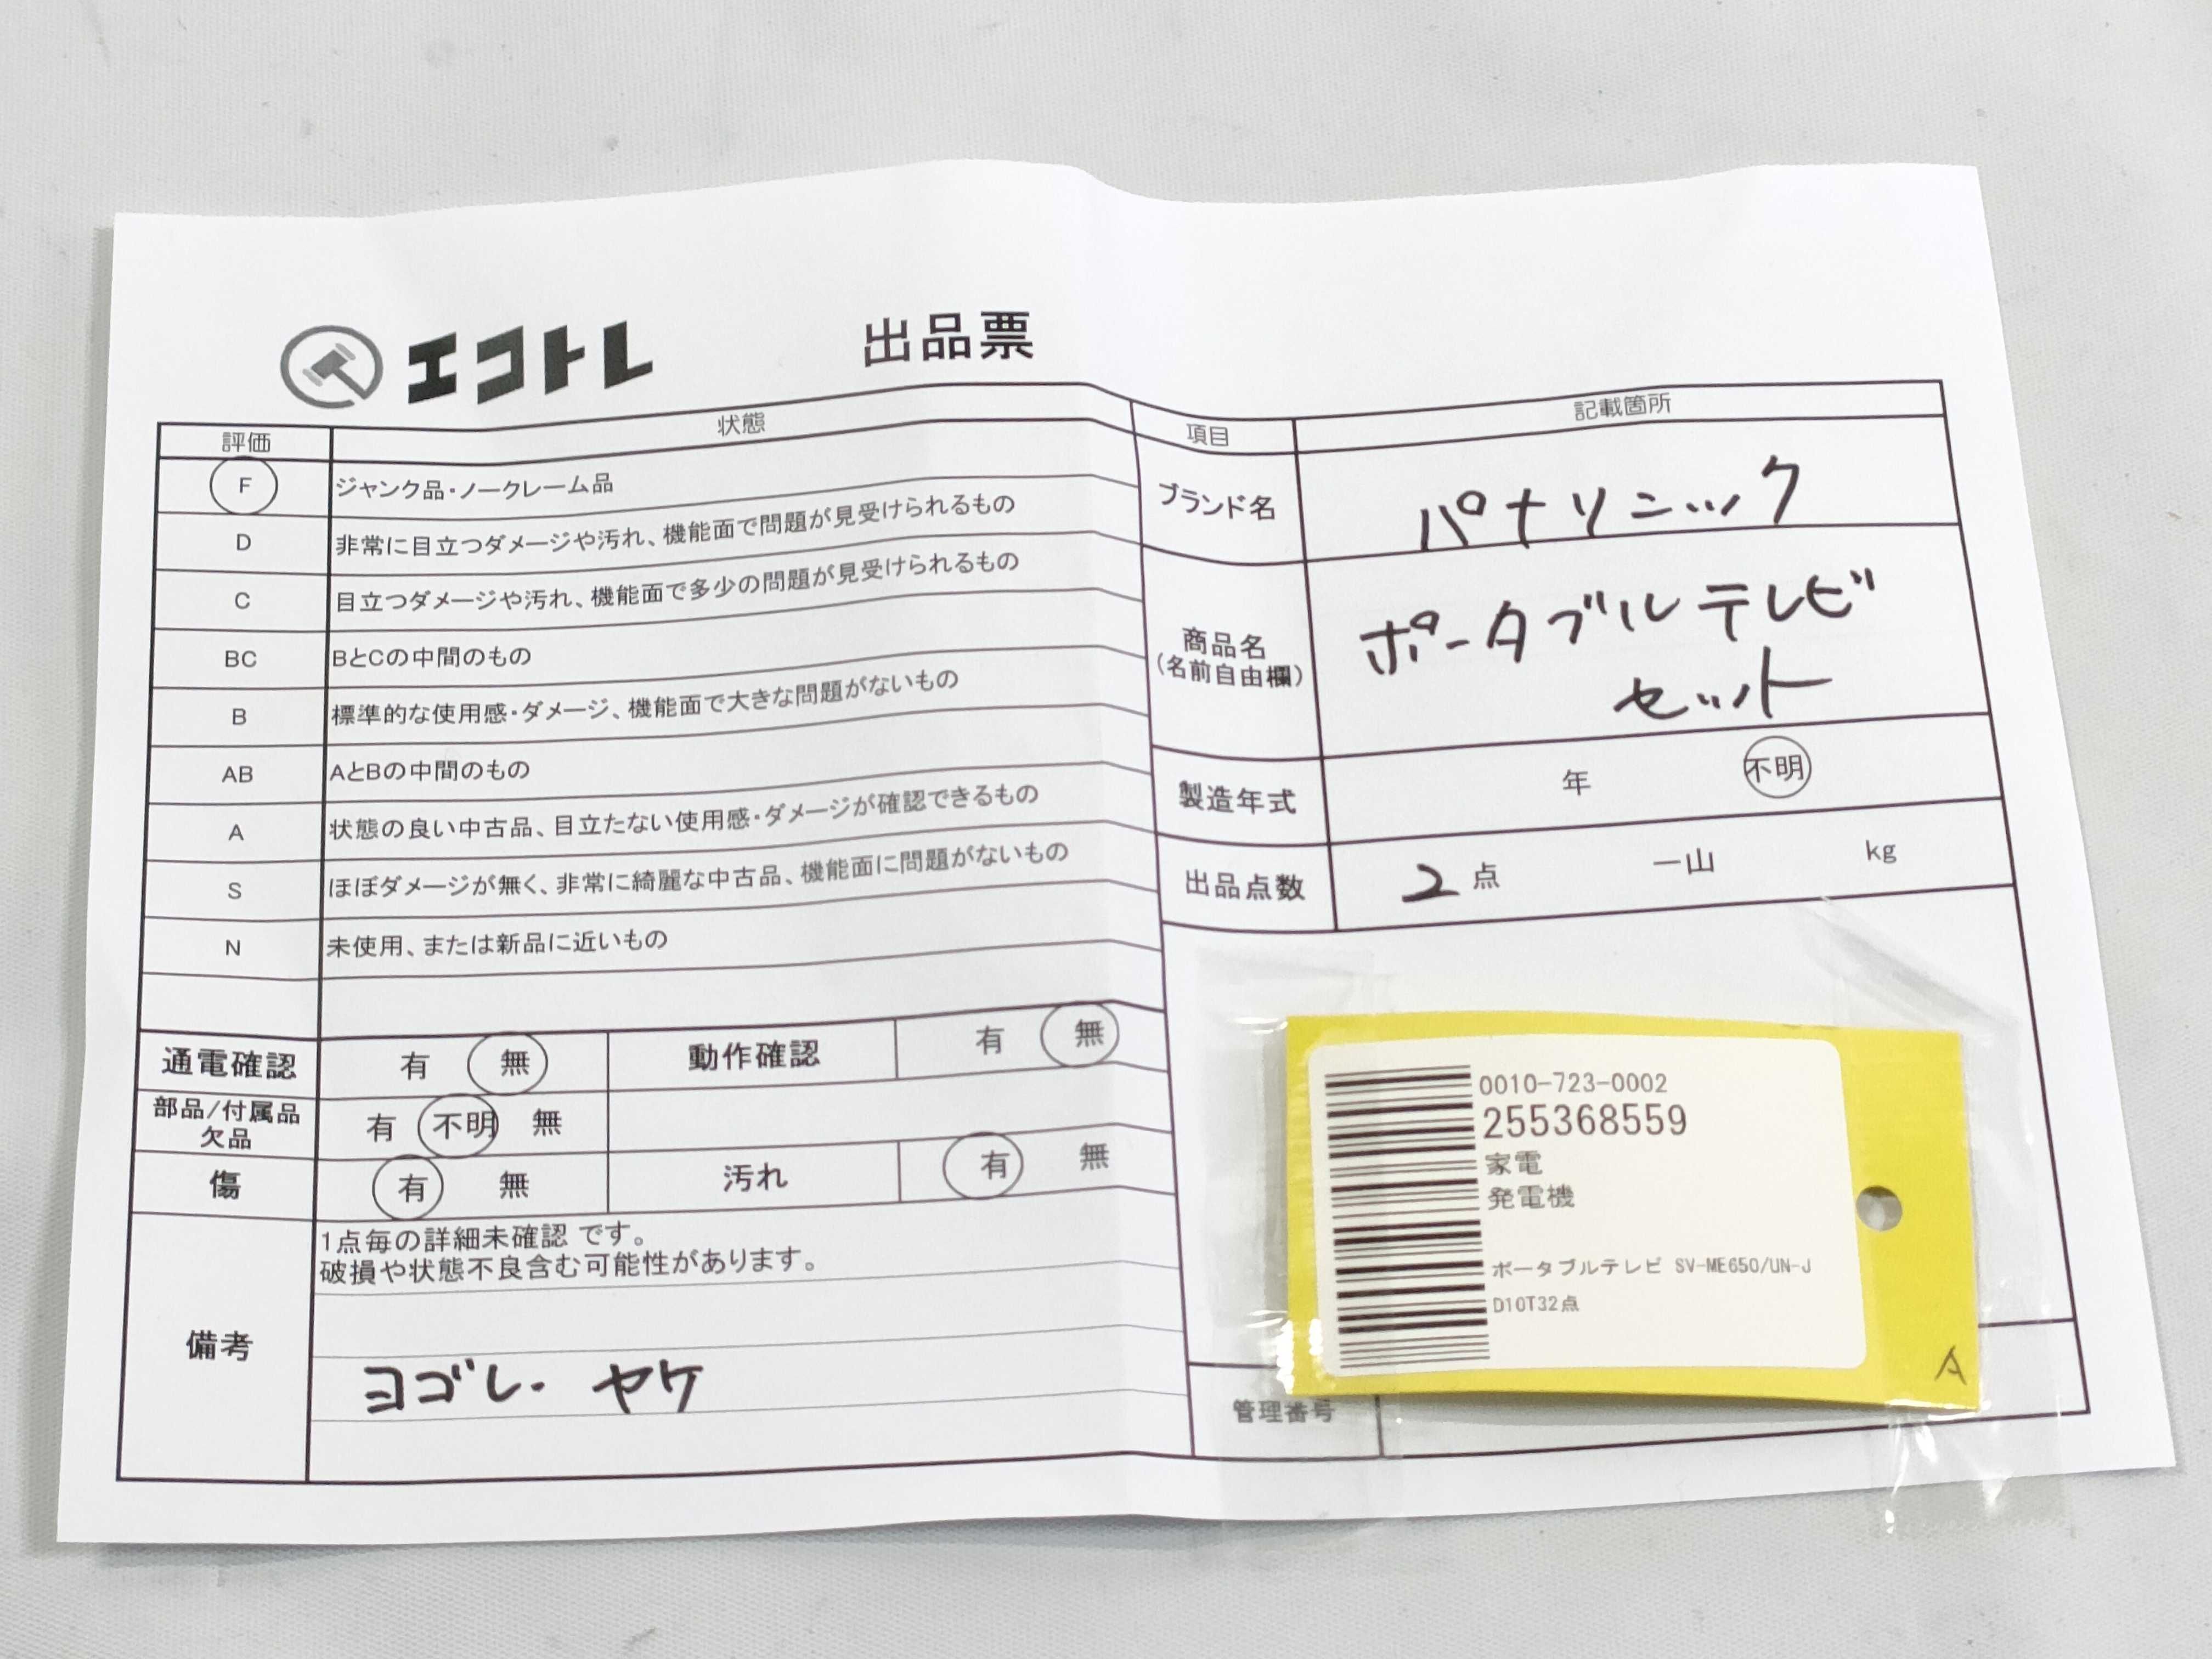 エコトレ 出品票
評価 状態
F ジャンク品・ノークレーム品
D 非常に目立つダメージや汚れ、機能面で問題が見受けられるもの
C 目立つダメージや汚れ、機能面で多少の問題が見受けられるもの
BC BとCの中間のもの
B 標準的な使用感・ダメージ、機能面で大きな問題がないもの
AB AとBの中間のもの
A 状態の良い中古品、目立たない使用感・ダメージが確認できるもの
S ほぼダメージが無く、非常に綺麗な中古品、機能面に問題がないもの
N 未使用、または新品に近いもの
通電確認 有 無 動作確認 有 無
部品/付属品
欠品 有 不明 無
傷 有 無 汚れ 有 無
備考
1点毎の詳細未確認 です。
破損や状態不良含む可能性があります。
ヨゴレ・ヤケ
項目 記載箇所
ブランド名 パナソニック
商品名
(名前自由欄)
ポータブルテレビ
セット
製造年式 年 不明
出品点数 2 点 一山 kg
0010-723-0002
255368559
家電
発電機
ポータブルテレビ SV-ME650/UN-J
D10T32点
A
管理番号